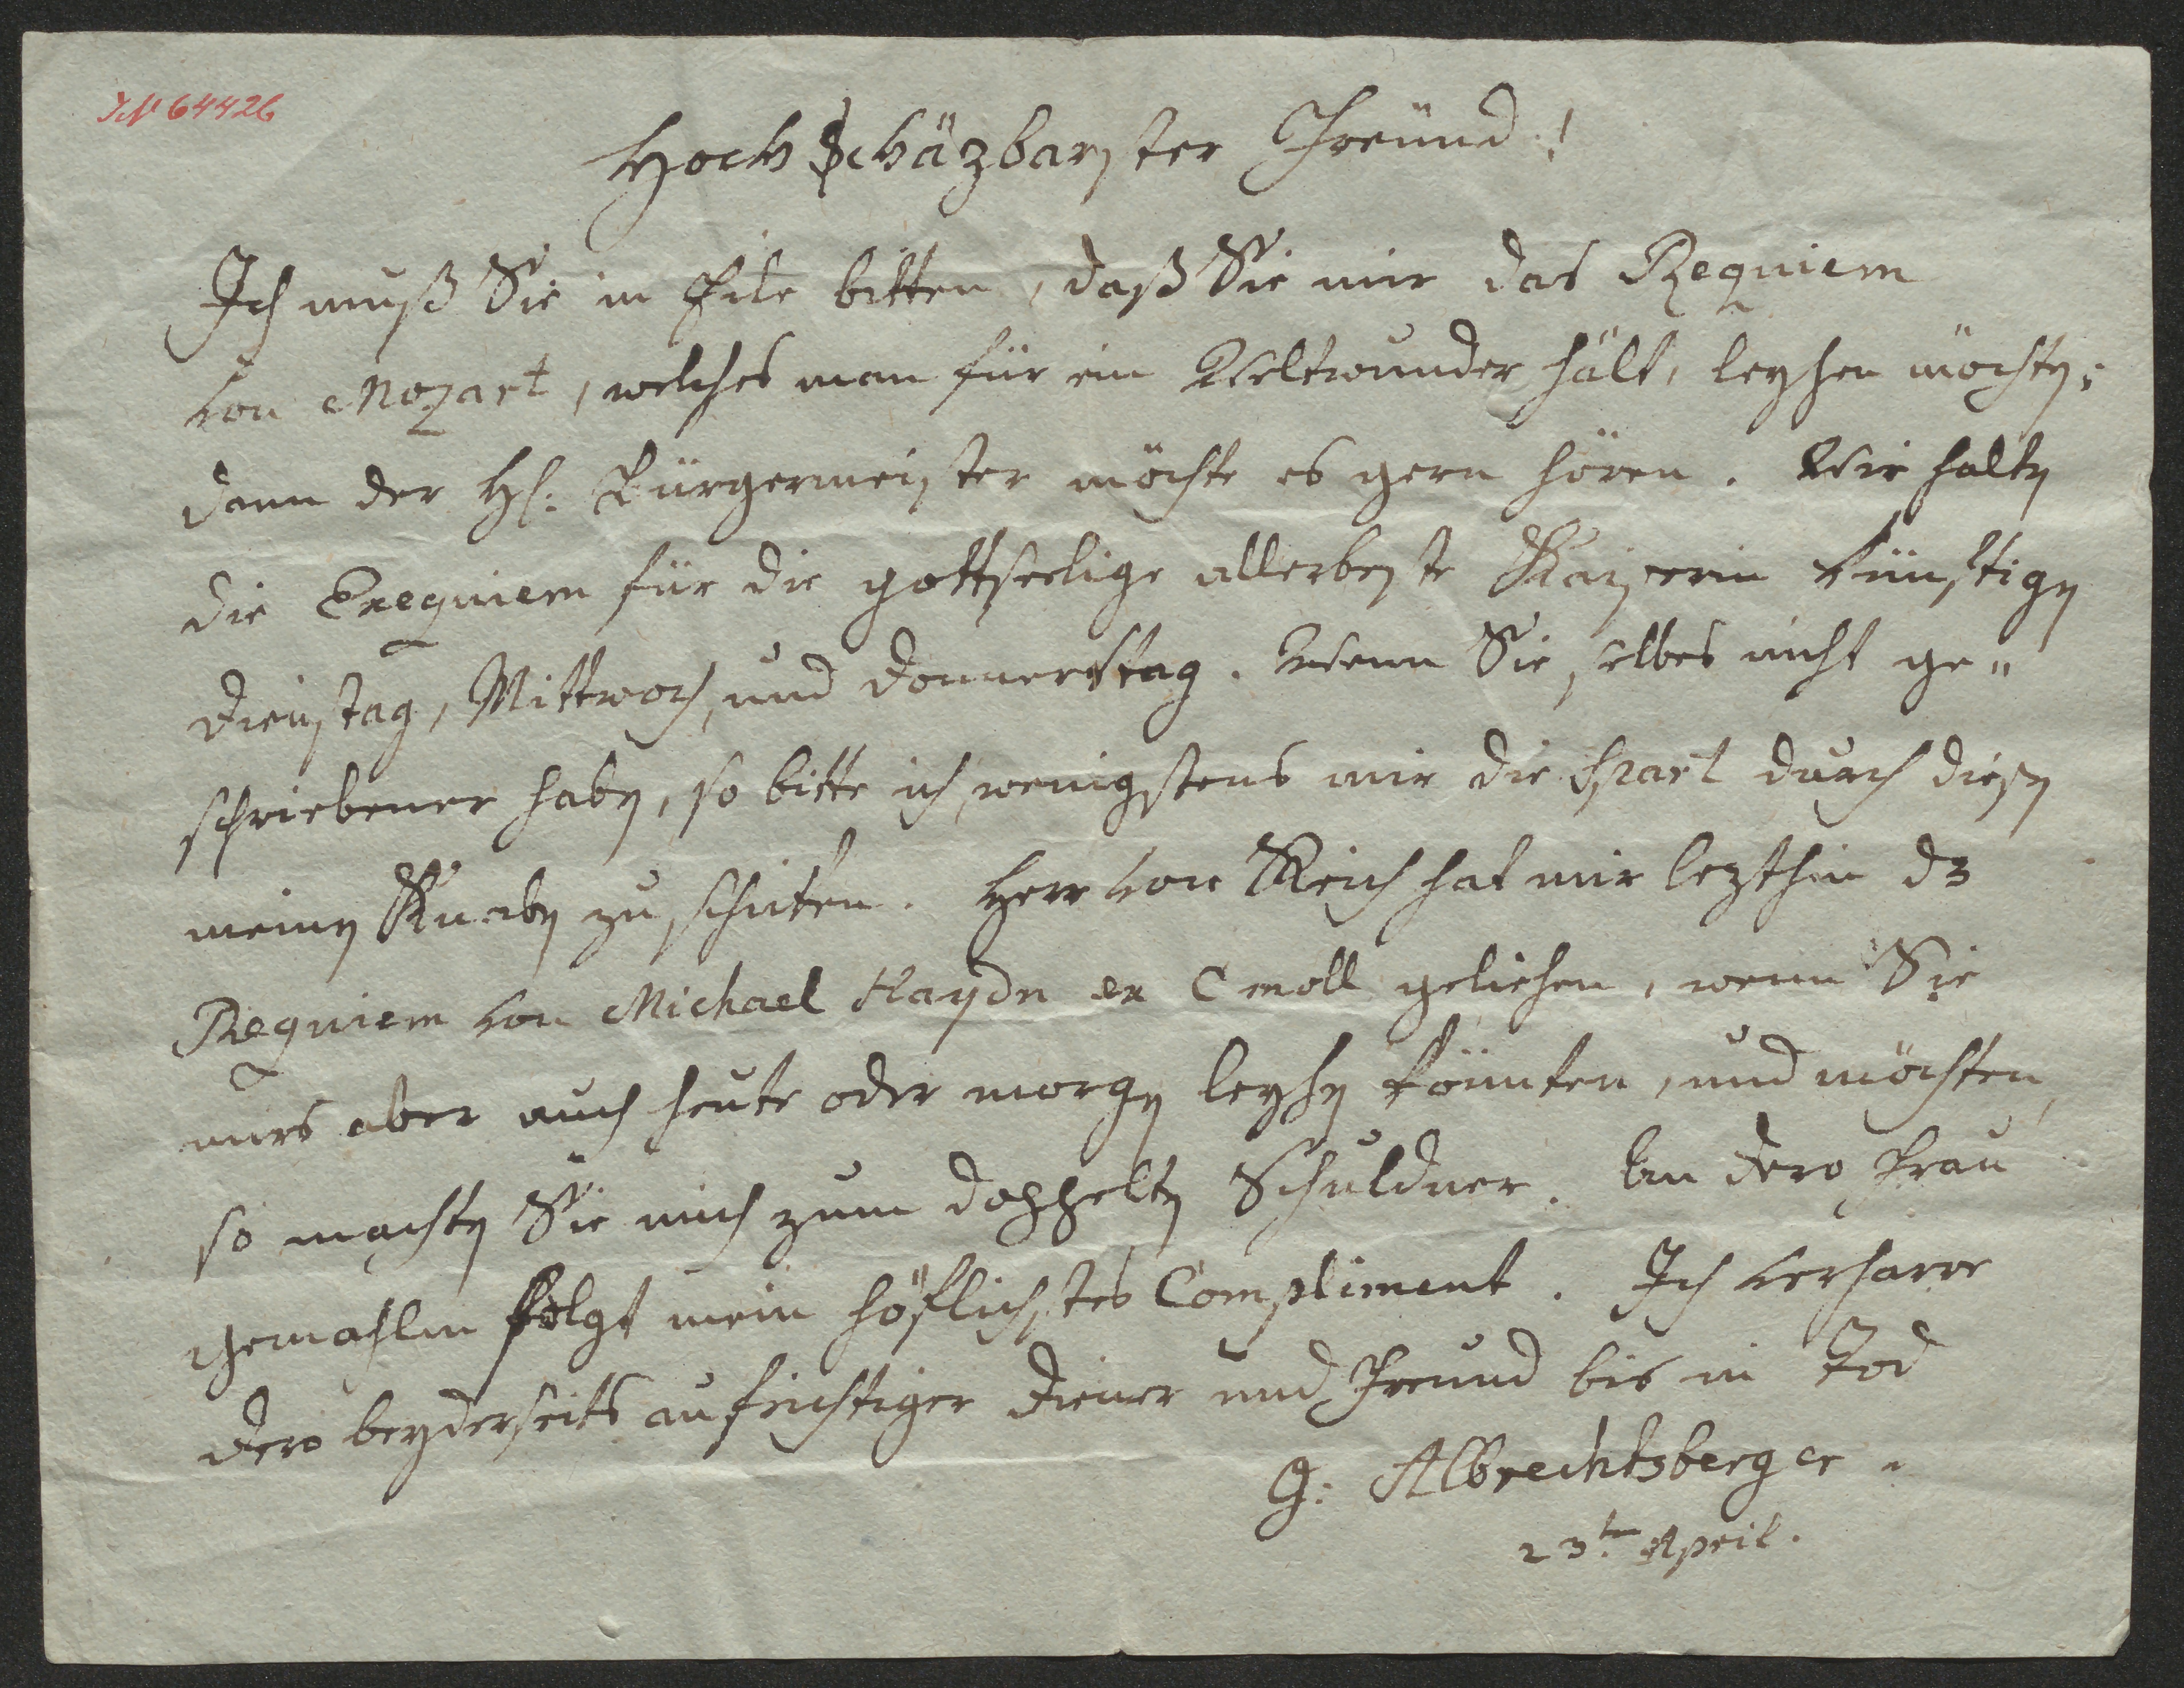 JN 64426
Hochschäzbarster Freünd!
Ich muß Sie in Eile bitten, daß Sie mir das Requiem
von Mozart, welches man für ein Weltwunder hält, leyhen möchten;
dann der H: Bürgermeister möchte es gern hören. Wir halten
die Exequiem für die gottseelige allerbeste Kaiserin künftigen
Dienstag, Mittwoch, und Donnerstag. Wenn Sie selbes nicht ge„
schriebener haben, so bitte ich, wenigstens mir die Spart durch diesen
meinen Knaben zu schicken. Herr von Reich hat mir lezthin dz
Requiem von Michael Haydn ex C moll geliehen, wenn Sie
mirs aber auch heute oder morgen leyhen könnten, und möchten,
so machten Sie mich zum doppelten Schuldner. An Dero Frau
gemahlin folgt mein höflichstes Compliment. Ich verharre
Dero beyderseits aufrichtiger Diener und Freund bis in Tod
G: Albrechtsberger.
23ten April.